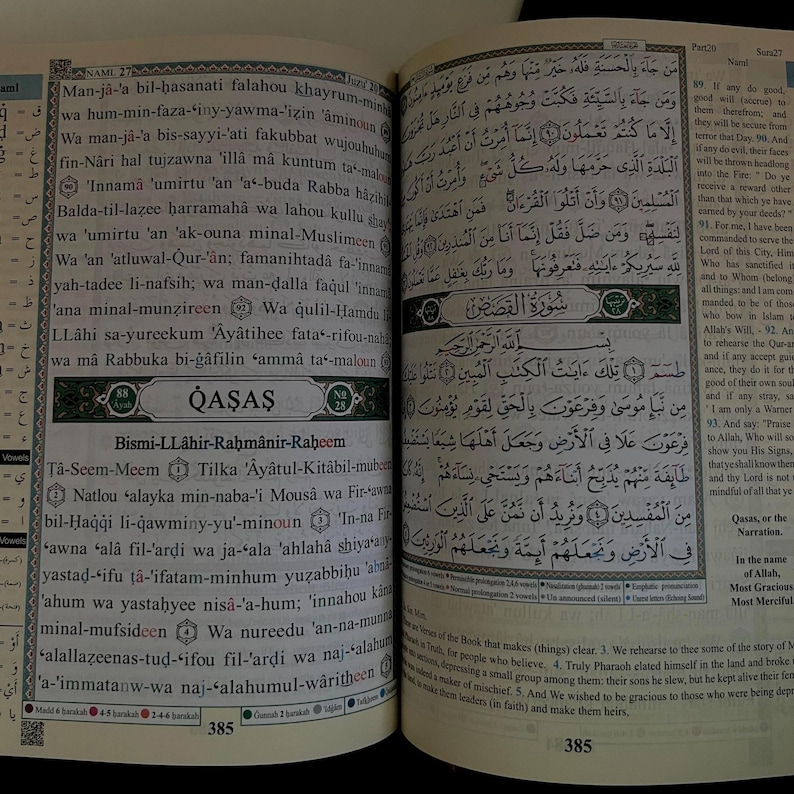 NAML 27
Juzu' 20
Man-jâ-'a bil-ḥasanati falahou khayrum-minhâ
wa hum-min-faza-ʻiny-yawma-'iẓin 'âminoun
Wa man-jâ-'a bis-sayyi-'ati fakubbat wujouhuhum
fin-Nâri hal tujzawna 'illâ mâ kuntum taʻ-maloun
90 'Innamâ 'umirtu 'an 'aʻ-buda Rabba hâẓihil
Balda-til-laẓee ḥarramahâ wa lahou kullu shay'
wa 'umirtu 'an 'ak-ouna minal-Muslimeen 91
Wa 'an 'atluwal-Q̇ur-'ân; famanihtadâ fa-'innamâ
yah-tadee li-nafsih; wa man-ḍalla faq̇ul 'innamâ
'ana minal-munẓireen 92 Wa q̇ulil-Ḥamdu li
LLâhi sa-yureekum 'Âyâtihee fataʻ-rifou-nahâ
wa mâ Rabbuka bi-ġâfilin ʻammâ taʻ-maloun
88
'Âyah
Q̇AṢAṢ
No
28
Bismi-LLâhir-Raḥmânir-Raḥeem
Ṭâ-Seem-Meem 1 Tilka 'Âyâtul-Kitâbil-mubeen
2 Natlou ʻalayka min-naba-'i Mousâ wa Fir-ʻawna
bil-Ḥaq̇q̇i li-q̇awminy-yu'-minoun 3 'In-na Fir-
ʻawna ʻalâ fil-'arḍi wa ja-ʻala 'ahlahâ shiyaʻany-
yastaḍ-ʻifu ṭâ-'ifatam-minhum yuẓabbiḥu 'abnâ-
'ahum wa yastaḥyee nisâ-'a-hum; 'innahou kâna
minal-mufsideen 4 Wa nureedu 'an-na-munna
ʻalallaẓeenas-tuḍ-ʻifou fil-'arḍi wa naj-ʻalahum
'a-'immatanw-wa naj-ʻalahumul-wâritheen
Madd 6 ḥarakah
4-5 ḥarakah
2-4-6 ḥarakah
Ġunnah 2 ḥarakah
'Idġâm
Tafkheem
385
Vowels
Vowels
مَن جَآءَ بِٱلْحَسَنَةِ فَلَهُۥ خَيْرٌ مِّنْهَا وَهُم مِّن فَزَعٍ يَوْمَئِذٍ ءَامِنُونَ
وَمَن جَآءَ بِٱلسَّيِّئَةِ فَكُبَّتْ وُجُوهُهُمْ فِى ٱلنَّارِ هَلْ تُجْزَوْنَ
إِلَّا مَا كُنتُمْ تَعْمَلُونَ ٩٠ إِنَّمَآ أُمِرْتُ أَنْ أَعْبُدَ رَبَّ
ٱلْبَلْدَةِ ٱلَّذِى حَرَّمَهَا وَلَهُۥ كُلُّ شَىْءٍ وَأُمِرْتُ أَنْ أَكُونَ
ٱلْمُسْلِمِينَ ٩١ وَأَنْ أَتْلُوَا۟ ٱلْقُرْءَانَ فَمَنِ ٱهْتَدَىٰ فَإِنَّمَا يَهْتَدِى
لِنَفْسِهِۦ وَمَن ضَلَّ فَقُلْ إِنَّمَآ أَنَا۠ مِنَ ٱلْمُنذِرِينَ ٩٢
لِلَّهِ سَيُرِيكُمْ ءَايَٰتِهِۦ فَتَعْرِفُونَهَا وَمَا رَبُّكَ بِغَٰفِلٍ عَمَّا تَعْمَلُونَ
سُورَةُ القَصَصِ
بِسْمِ ٱللَّهِ ٱلرَّحْمَٰنِ ٱلرَّحِيمِ
طسٓمٓ ١ تِلْكَ ءَايَٰتُ ٱلْكِتَٰبِ ٱلْمُبِينِ ٢ نَتْلُوا۟ عَلَيْكَ
مِن نَّبَإِ مُوسَىٰ وَفِرْعَوْنَ بِٱلْحَقِّ لِقَوْمٍ يُؤْمِنُونَ
فِرْعَوْنَ عَلَا فِى ٱلْأَرْضِ وَجَعَلَ أَهْلَهَا شِيَعًا يَسْتَضْعِفُ
طَآئِفَةً مِّنْهُمْ يُذَبِّحُ أَبْنَآءَهُمْ وَيَسْتَحْىِۦ نِسَآءَهُمْ إِنَّهُۥ كَانَ
مِنَ ٱلْمُفْسِدِينَ ٤ وَنُرِيدُ أَن نَّمُنَّ عَلَى ٱلَّذِينَ ٱسْتُضْعِفُوا۟
فِى ٱلْأَرْضِ وَنَجْعَلَهُمْ أَئِمَّةً وَنَجْعَلَهُمُ ٱلْوَٰرِثِينَ
Permissible prolongation 2,4,6 vowels
Nasalization (ghunnah) 2 vowels
Emphatic pronunciation
Normal prolongation 2 vowels
Un announced (silent)
Unrest letters (Echoing Sound)
Part20
Sura27
Naml
89. If any do good,
good will (accrue) to
them therefrom; and
they will be secure from
terror that Day. 90. And
if any do evil, their faces
will be thrown headlong
into the Fire: " Do ye
receive a reward other
than that which ye have
earned by your deeds? "
91. For me, I have been
commanded to serve the
Lord of this City, Him
Who has sanctified it
and to Whom (belong)
all things: and I am com-
manded to be of those
who bow in Islam to
Allah's Will, - 92. And
to rehearse the Qur-an:
and if any accept guid-
ance, they do it for the
good of their own souls
and if any stray, say
' I am only a Warner
93. And say: "Praise
to Allah, Who will soon
show you His Signs,
that ye shall know them
and thy Lord is not
mindful of all that ye
Qasas, or the
Narration.
In the name
of Allah,
Most Gracious
Most Merciful.
Sin, Mim.
are Verses of the Book that makes (things) clear. 3. We rehearse to thee some of the story of
Pharaoh in Truth, for people who believe. 4. Truly Pharaoh elated himself in the land and broke
into sections, depressing a small group among them: their sons he slew, but he kept alive their
was indeed a maker of mischief. 5. And We wished to be gracious to those who were being
land, to make them leaders (in faith) and make them heirs,
385